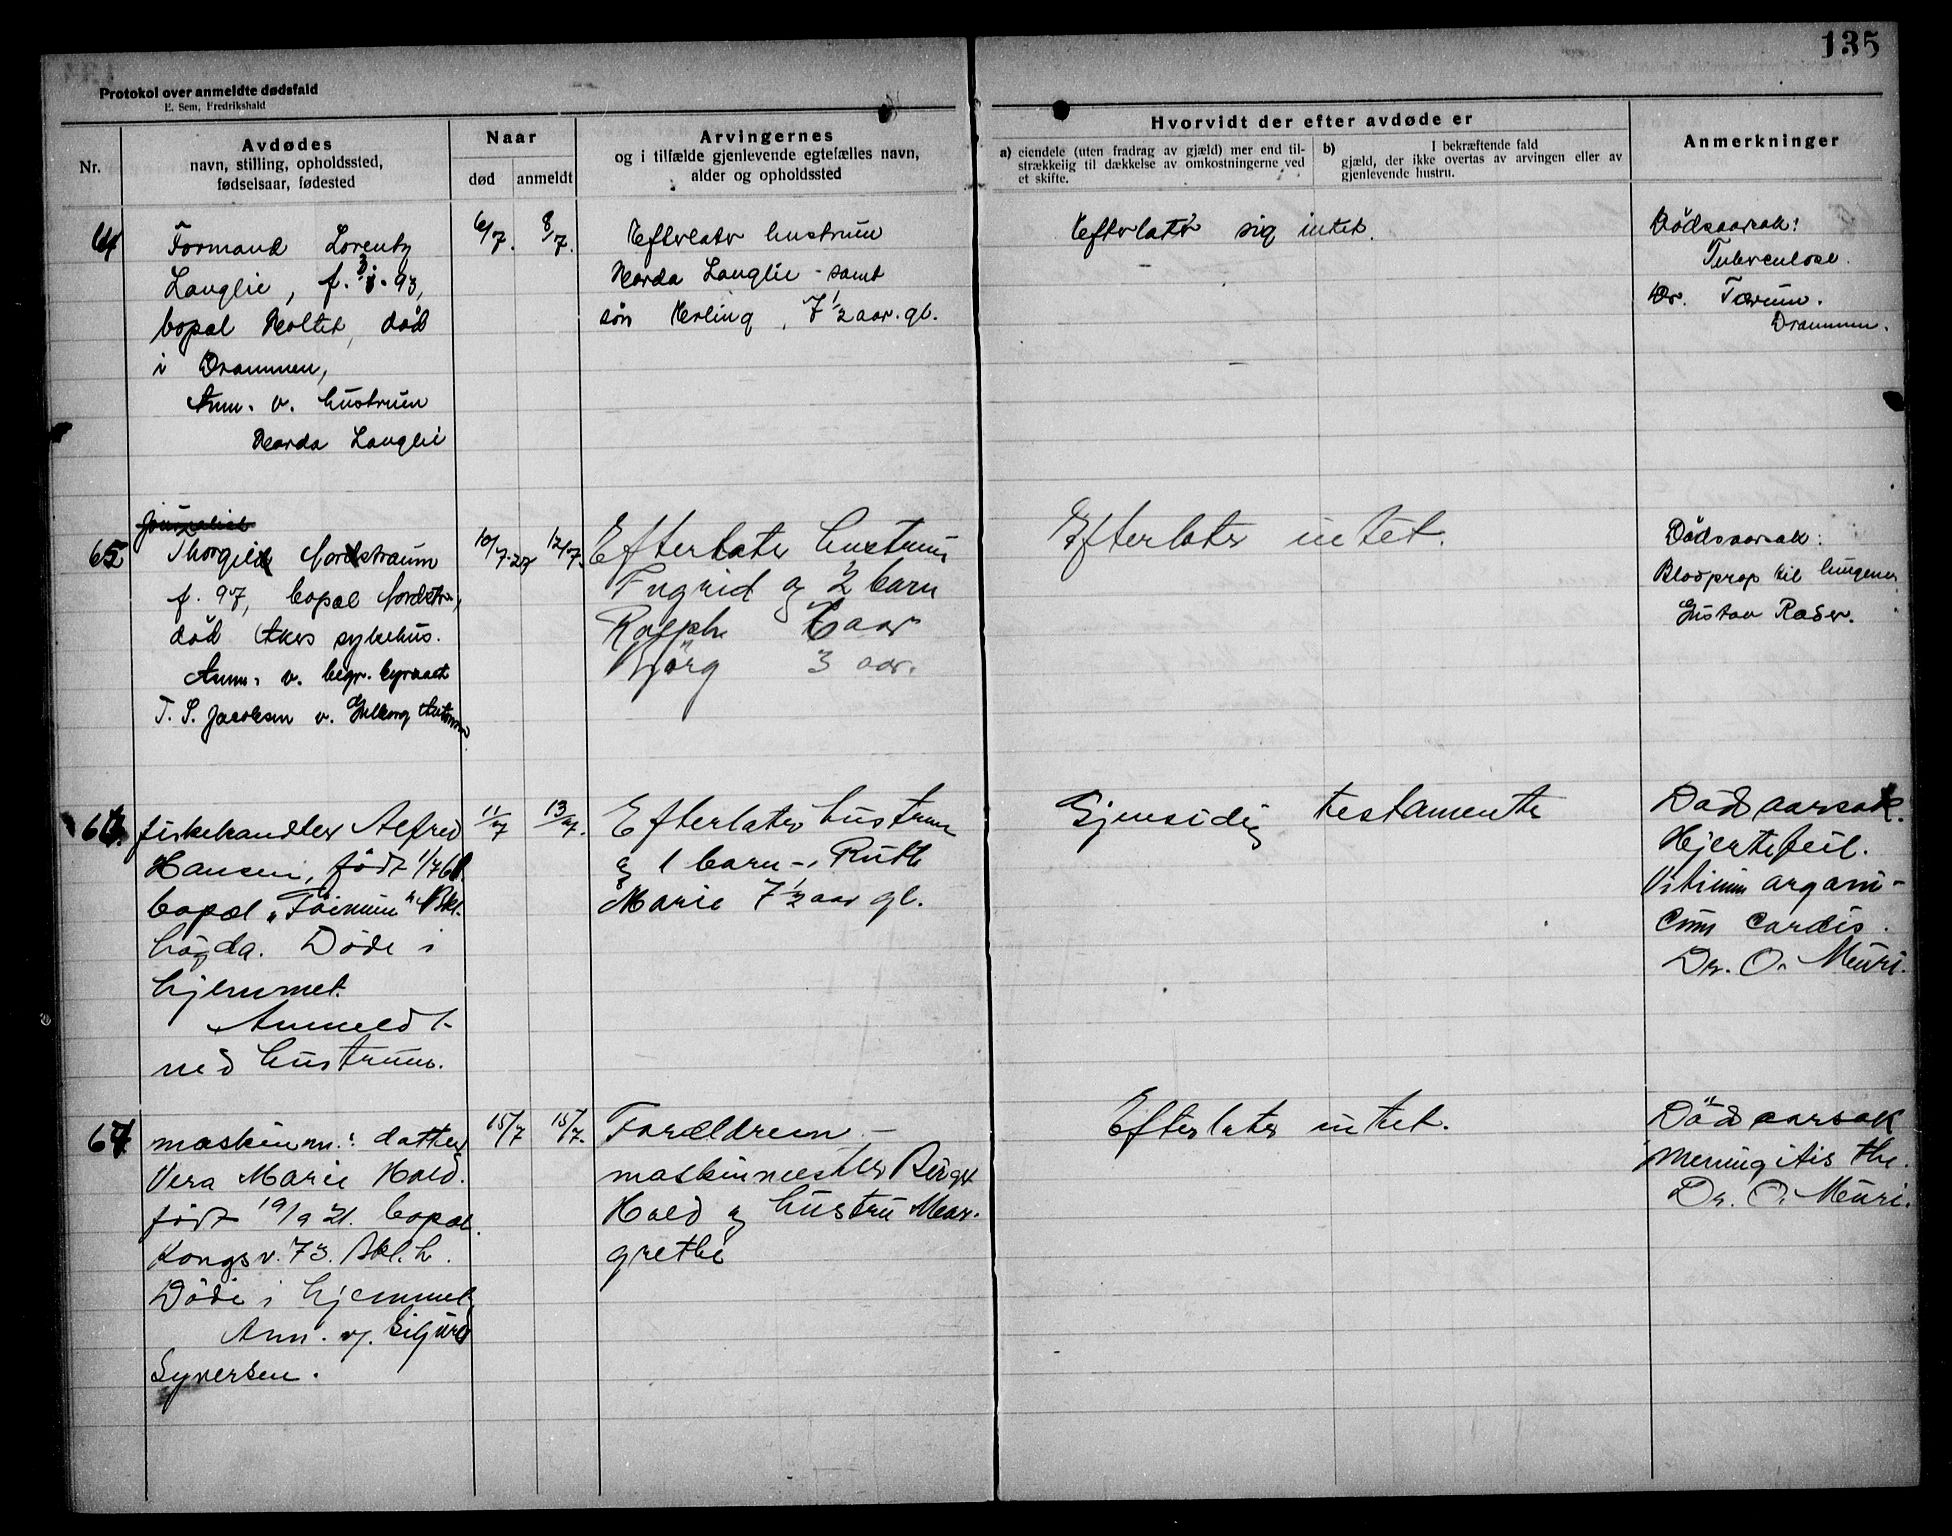 135
Protokol over anmeldte dødsfald
E. Sem, Fredrikshald
Nr.
Avdødes
navn, stilling, opholdssted,
fødselsaar, fødested
Naar
død
anmeldt
Arvingernes
og i tilfælde gjenlevende egtefælles navn,
alder og opholdssted
Hvorvidt der efter avdøde er
a) eiendele (uten fradrag av gjæld) mer end til-
strækkelig til dækkelse av omkostningerne ved
et skifte.
b) I bekræftende fald
gjæld, der ikke overtas av arvingen eller av
gjenlevende hustru.
Anmerkninger
64
Formand Lorentz
Langlie, f. 93,
bopæl Holtet, død
i Drammen,
Anm. v. hustruen
Harda Langlie
6/7.
8/7.
Efterlater hustruen
Harda Langlie - samt
søn Erling, 7 1/2 aar. gl.
Efterlater sig intet.
Dødsaarsak:
Tuberculose.
Dr. Tærum.
Drammen.
65
Journalist
Thorgils Nordstraum
f. 97, bopæl Nordstr.,
død Akers sykehus.
Anm. v. begr. byraaet
T. S. Jacobsen v.
10/7-27
12/7.
Efterlater hustruen
Ingrid og 2 barn
Ralph 6 aar
Bjørg 3 aar.
Efterlater intet.
Dødsaarsak:
Blodprop til lungene
Gustav Raser.
66.
fiskehandler Alfred
Hansen, født 1/7
bopæl „Tøimun" Bkl.
høgda. Døde i
hjemmet.
Anmeldt
ved hustruen.
11/7
13/7.
Efterlater hustruen
og 1 barn -. Ruth
Marie 7 1/2 aar gl.
Gjensidig testamente
Dødsaarsak.
Hjertefeil.
Vitium organi-
cum cordis.
Dr. O. Meuri.
67
maskinm.: datter
Vera Marie Hold.
født 19/9 21. bopæl
Kongsv. 73. Bkl. h.
Døde i hjemmet,
Anm. v. Sigurd
Syversen.
15/7
15/7.
Forældrene -
maskinmester Birger
Hold og hustru Mar-
grethe
Efterlater intet.
Dødsaarsak
Meningitis tbc.
Dr. O. Meuri.